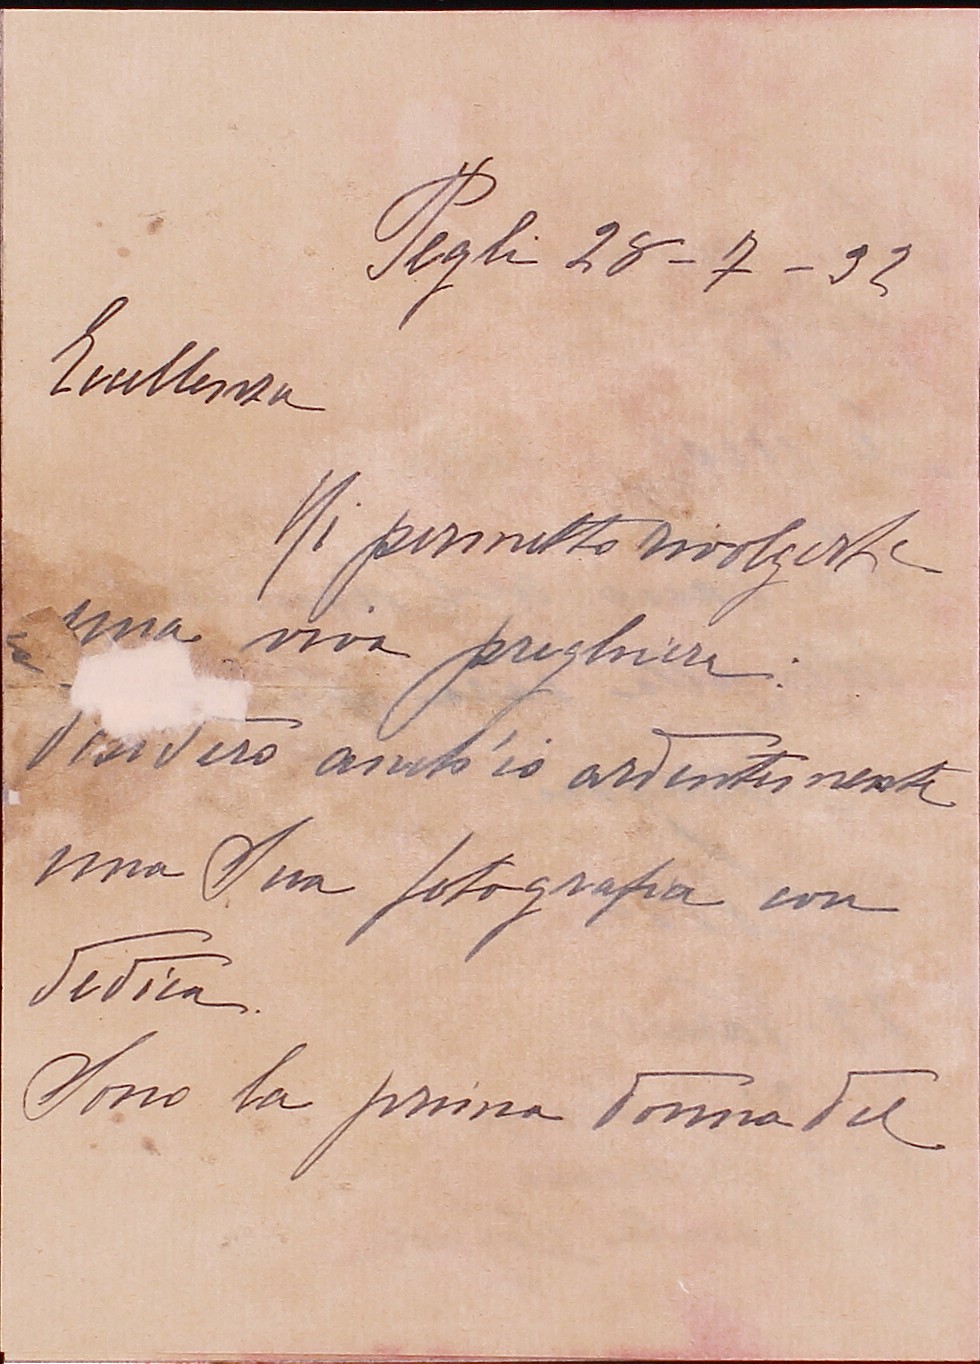 Pegli 28 - 7 - 32
Eccellenza
Mi permetto rivolgerle
una viva preghiera:
desidero anch'io ardentemente
una Sua fotografia con
dedica.
Sono la prima donna del